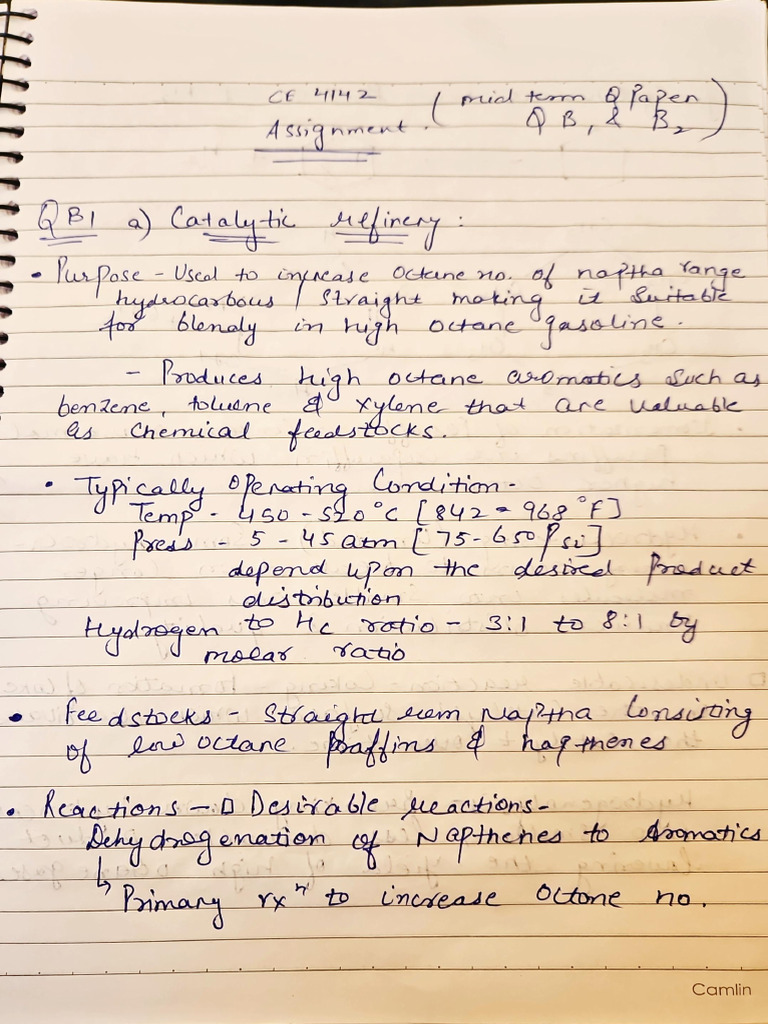 CE 4142 (mid term Q Paper
Assignment. Q B1 & B2)
QB1 a) Catalytic refinery:
• Purpose - Used to increase octane no. of naptha range
hydrocarbons / straight making it suitable
for blendy in high octane gasoline.
- Produces high octane aromatics such as
benzene, toluene & xylene that are valuable
as chemical feedstocks.
• Typically Operating Condition -
Temp - 450 - 520°C [842 - 968°F]
Press - 5 - 45 atm [75 - 650 Psi]
depend upon the desired Product
distribution
Hydrogen to HC ratio - 3:1 to 8:1 by
molar ratio
• Feedstocks - Straight run Naptha Consisting
of low octane paffins & napthenes
• Reactions - □ Desirable reactions -
Dehydrogenation of Napthenes to Aromatics
↳ Primary rxⁿ to increase Octane no.
Camlin